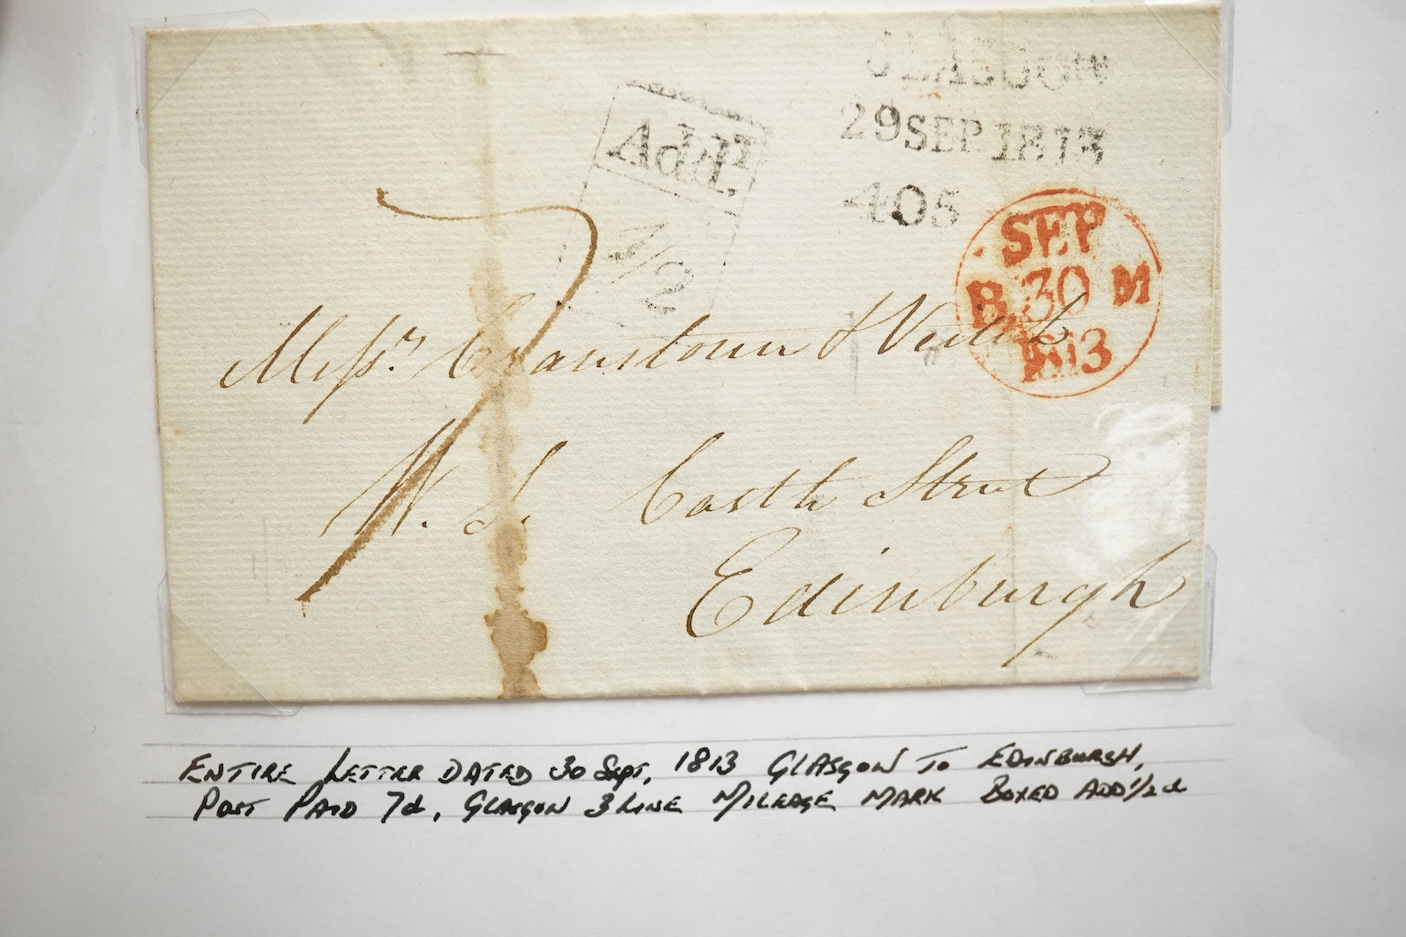 GLASGOW
29 SEP 1813
405
Addl
1/2
SEP
B 30 M
1813
7
Messrs. Cranstoun & Veitch
W. S. Castle Street
Edinburgh
ENTIRE LETTER DATED 30 Sept, 1813 GLASGOW TO EDINBURGH,
POST PAID 7d, GLASGOW 3 LINE MILEAGE MARK BOXED ADD 1/2d